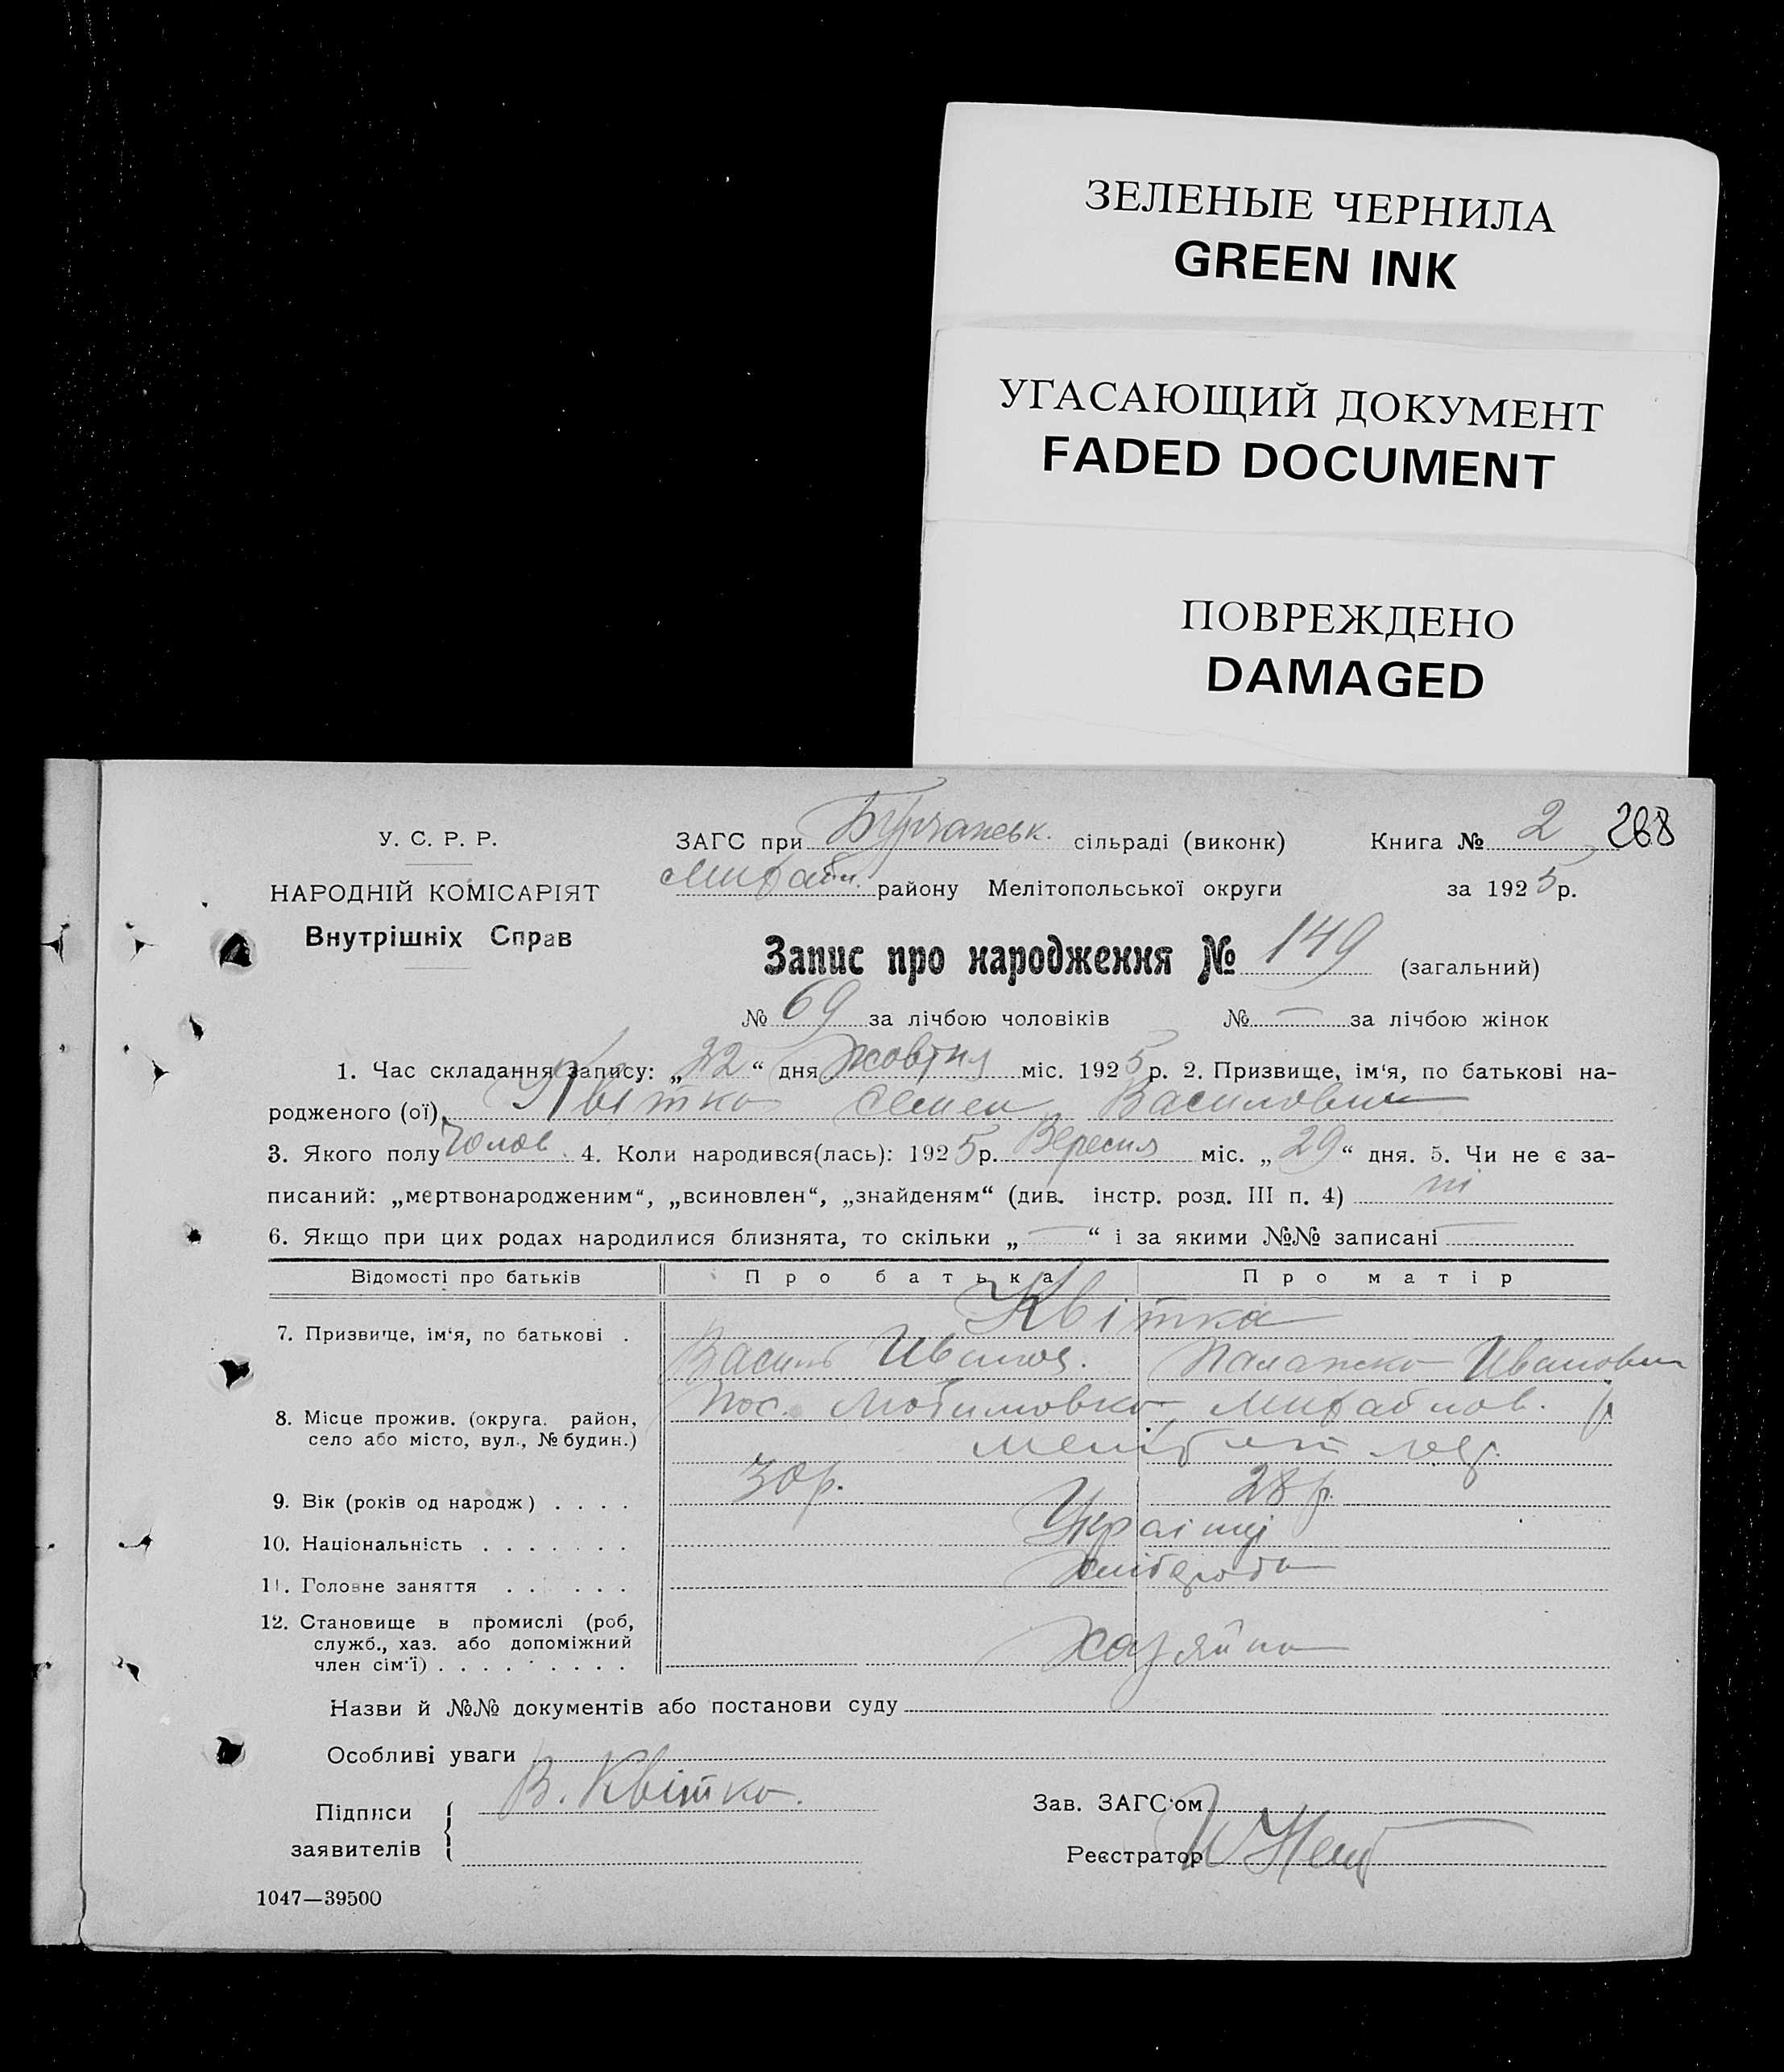 ЗЕЛЕНЫЕ ЧЕРНИЛА
GREEN INK
УГАСАЮЩИЙ ДОКУМЕНТ
FADED DOCUMENT
ПОВРЕЖДЕНО
DAMAGED
У. С. Р. Р.
НАРОДНІЙ КОМІСАРІЯТ
Внутрішніх Справ
ЗАГС при Бурчанськ. сільраді (виконк) Книга № 2 268
Михайл. району Мелітопольської округи за 1925 р.
Запис про народження № 149 (загальний)
№ 69 за лічбою чоловіків № — за лічбою жінок
1. Час складання запису: „22“ дня жовтня міс. 1925 р. 2. Призвище, ім‘я, по батькові на-
родженого (ої) Квітка Семен Василович
3. Якого полу Чолов. 4. Коли народився(лась): 1925 р. Вересня міс. „29“ дня. 5. Чи не є за-
писаний: „мертвонародженим“, „всиновлен“, „знайденям“ (див. інстр. розд. III п. 4) ні
6. Якщо при цих родах народилися близнята, то скільки „—“ і за якими №№ записані —
Відомості про батьків Про батька Про матір
Квітка
7. Призвище, ім‘я, по батькові .
Василь Иванов. Палажка Ивановн
пос. Любимовка, Михайлов. р
8. Місце прожив. (округа. район,
село або місто, вул., № будин.)
9. Вік (років од народж) . . . . 30 р. 28 р.
10. Національність . . . . . . . Українці
11. Головне заняття . . . . . . хліборобо
12. Становище в промислі (роб,
служб., хаз. або допоміжний
член сім‘ї) . . . . . . . . . хазяйно
Назви й №№ документів або постанови суду
Особливі уваги
Підписи
заявителів
В. Квітко.
Зав. ЗАГС‘ом
Реєстратор
1047—39500